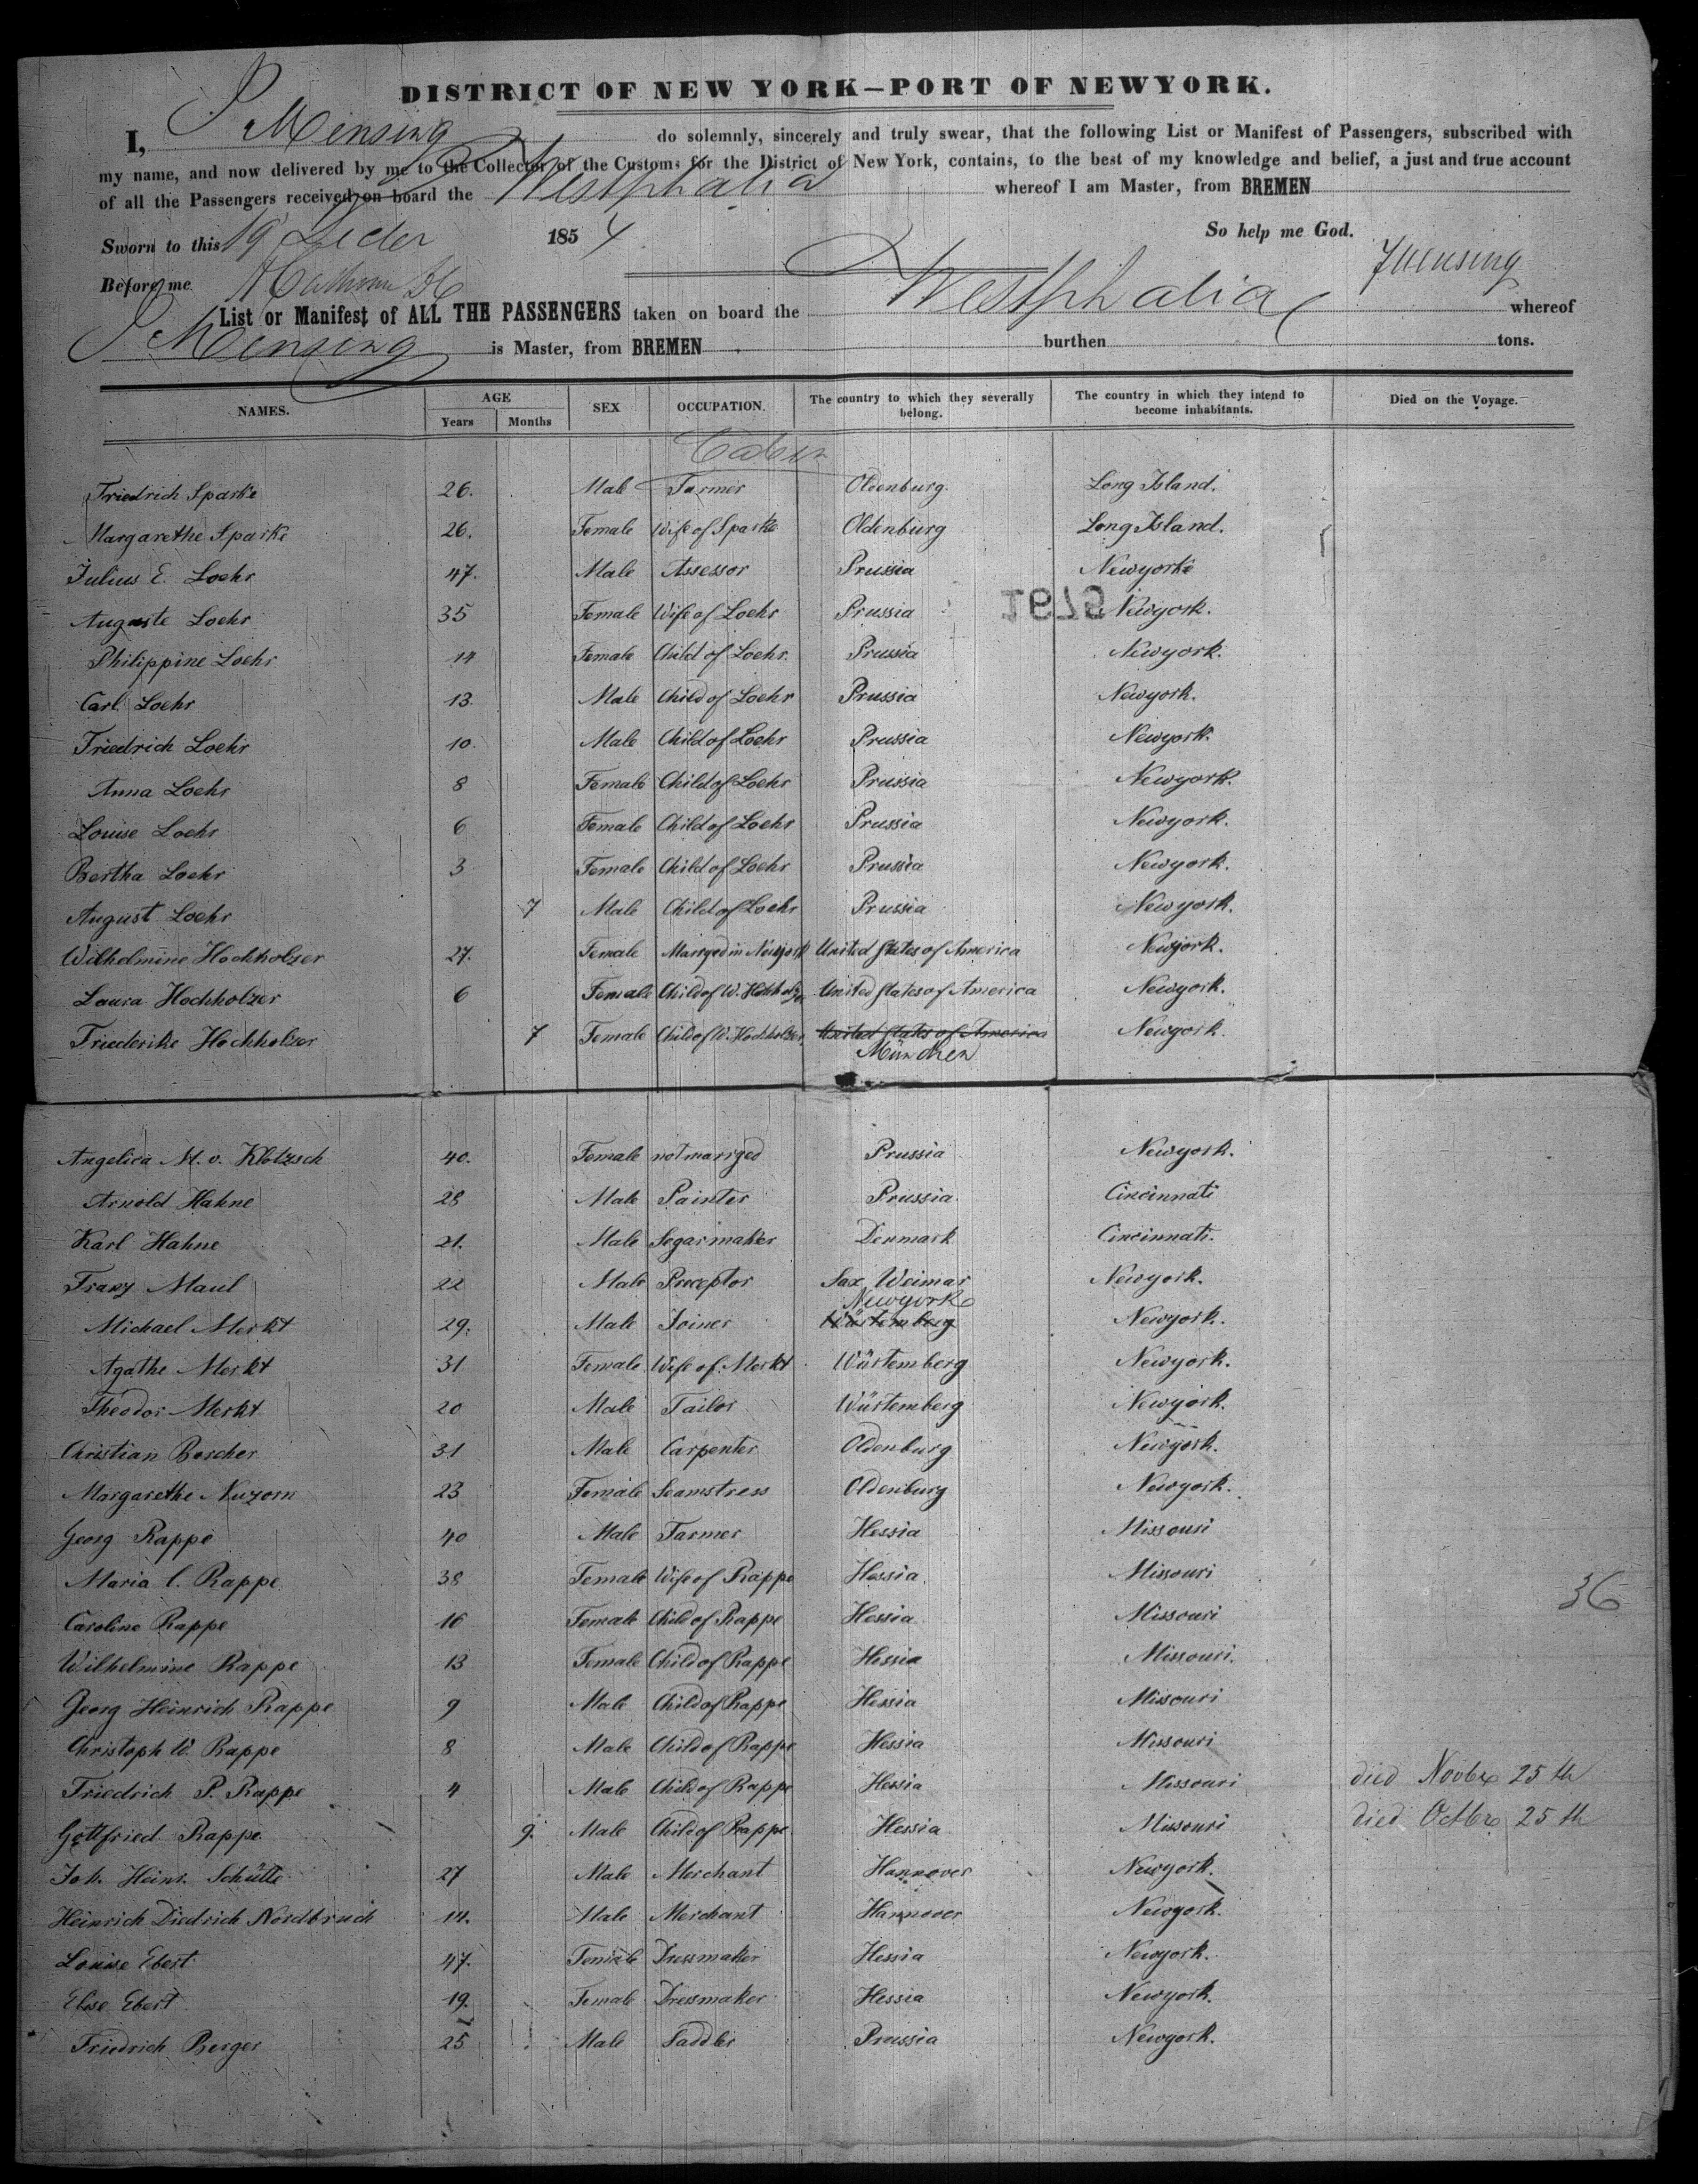 DISTRICT OF NEW YORK—PORT OF NEWYORK.
I, J Mensing do solemnly, sincerely and truly swear, that the following List or Manifest of Passengers, subscribed with
my name, and now delivered by me to the Collector of the Customs for the District of New York, contains, to the best of my knowledge and belief, a just and true account
of all the Passengers received on board the Westphalia whereof I am Master, from BREMEN
So help me God.
Sworn to this 19 1854
JMensing
Before me
List or Manifest of ALL THE PASSENGERS taken on board the Westphalia whereof
J Mensing is Master, from BREMEN burthen tons.
NAMES. AGE Years Months SEX OCCUPATION. The country to which they severally belong. The country in which they intend to become inhabitants. Died on the Voyage.
Cabin
Friedrich Sparke 26. Male Farmer Oldenburg. Long Island.
Margarethe Sparke 26. Female Wife of Sparke Oldenburg Long Island.
Julius E. Loehr 47. Male Assessor Prussia Newyork
1675
Auguste Loehr 35 Female Wife of Loehr Prussia Newyork.
Philippine Loehr 14 Female Child of Loehr. Prussia Newyork.
Carl Loehr 13. Male Child of Loehr Prussia Newyork.
Friedrich Loehr 10. Male Child of Loehr Prussia Newyork.
Anna Loehr 8 Female Child of Loehr Prussia Newyork.
Louise Loehr 6 Female Child of Loehr Prussia Newyork.
Bertha Loehr 3 Female Child of Loehr Prussia Newyork.
August Loehr 7 Male Child of Loehr Prussia Newyork.
Wilhelmine Hochholzer 27. Female Marryed in Newyork United States of America Newyork.
Laura Hochholzer 6 Female Child of W. Hochholzer United States of America Newyork.
Friederike Hochholzer 7 Female Child of W. Hochholzer United States of America Newyork.
München
Angelica M. v. Klotzsch 40. Female not marryed Prussia Newyork.
Arnold Hahne 28 Male Painter Prussia. Cincinnati
Karl Hahne 21. Male Segarmaker Denmark Cincinnati.
Franz Maul 22 Male Preceptor Sax. Weimar Newyork.
Newyork
Michael Merkt 29. Male Joiner Würtemberg Newyork.
Agathe Merkt 31 Female Wife of Merkt Würtemberg Newyork.
Theodor Merkt 20 Male Tailor Würtemberg Newyork.
Christian Borcher 31 Male Carpenter Oldenburg Newyork.
Margarethe Nuzorn 23 Female Seamstress Oldenburg Newyork.
Georg Rappe 40 Male Farmer Hessia Missouri
Maria C. Rappe 38 Female Wife of Rappe Hessia. Missouri
36
Caroline Rappe 16 Female Child of Rappe Hessia Missouri
Wilhelmine Rappe 13 Female Child of Rappe Hessia Missouri.
Georg Heinrich Rappe 9 Male Child of Rappe Hessia Missouri
Christoph W. Rappe 8 Male Child of Rappe Hessia Missouri
Friedrich P. Rappe 4 Male Child of Rappe Hessia Missouri died Novbr 25th
Gottfried Rappe 9. Male Child of Rappe Hessia Missouri died Octbr 25th
Joh. Heinr. Schütte 27 Male Merchant Hannover Newyork.
Heinrich Diedrich Nordbruch 14. Male Merchant Hannover Newyork.
Louise Ebert 47. Female Dressmaker Hessia Newyork.
Elise Ebert 19. Female Dressmaker Hessia Newyork.
Friedrich Berger 25 Male Saddler Prussia Newyork.